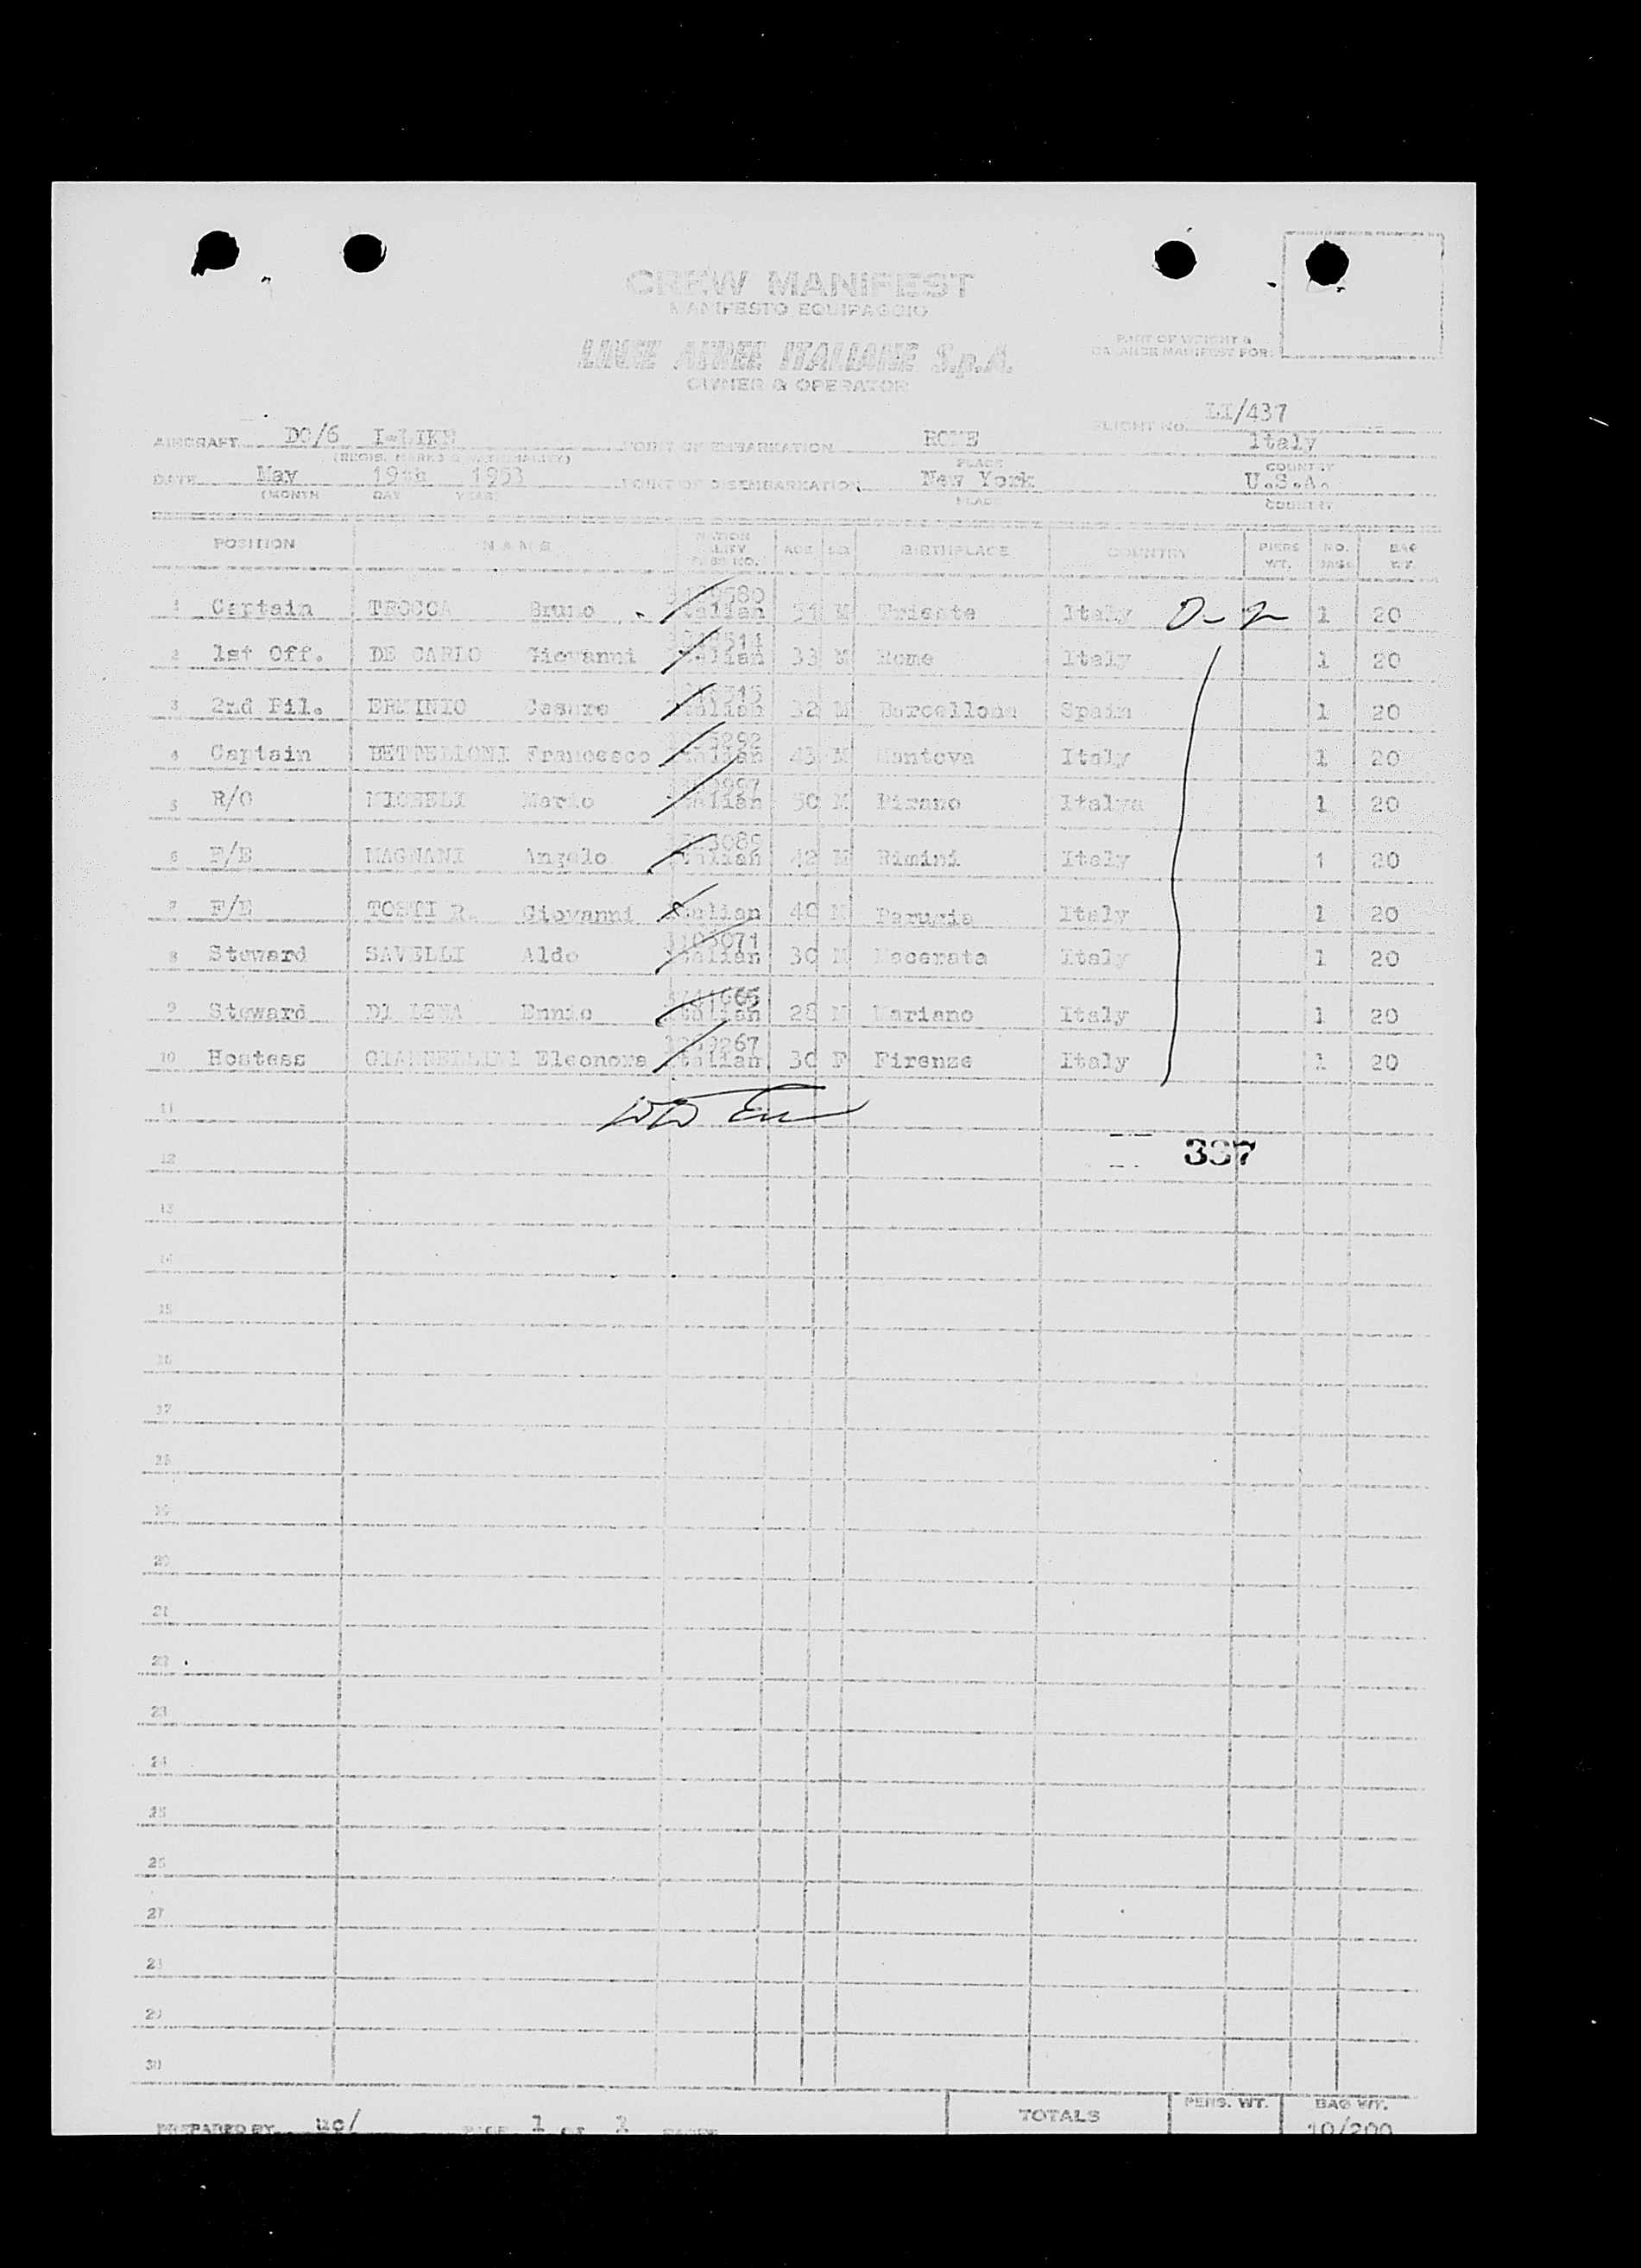 CREW MANIFEST
MANIFESTO EQUIPAGGIO
LINEE AEREE ITALIANE S.p.A.
OWNER & OPERATOR
PART OF WEIGHT &
BALANCE MANIFEST FOR:
FLIGHT No. LI/437
AIRCRAFT DC/6 I-LIKE POINT OF EMBARKATION ROME Italy
(REGIS. MARKS & NATIONALITY) PLACE COUNTRY
DATE May 19th 1953 POINT OF DISEMBARKATION New York U.S.A.
(MONTH DAY YEAR) PLACE COUNTRY
POSITION NAME NATION ALITY PASS NO. AGE SEX BIRTHPLACE COUNTRY PERS WT. NO. BAGS BAG WT.
1 Captain TROCCA Bruno Italian 51 M Trieste Italy 1 20
2 1st Off. DE CARLO Giovanni Italian 33 M Rome Italy 1 20
3 2nd Pil. ERMINIO Cesare Italian 32 M Barcellona Spain 1 20
4 Captain BETTELLONI Francesco Italian 43 M Mantova Italy 1 20
5 R/O Mario Italian 50 M Pirano Italya 1 20
6 F/E MAGNANI Angelo Italian 42 M Rimini Italy 1 20
7 F/E TOSTI R. Giovanni Italian 48 M Perugia Italy 1 20
8 Steward SAVELLI Aldo 3103071 Italian 30 M Macerata Italy 1 20
9 Steward DI LENA Ennio Italian 28 M Mariano Italy 1 20
10 Hostess Eleonora Italian 30 F Firenze Italy 1 20
11
12 337
13
14
15
16
17
18
19
20
21
22
23
24
25
26
27
28
29
30
PREPARED BY uc/ PAGE 1 OF PAGES TOTALS PERS. WT. BAG WT.
10/200